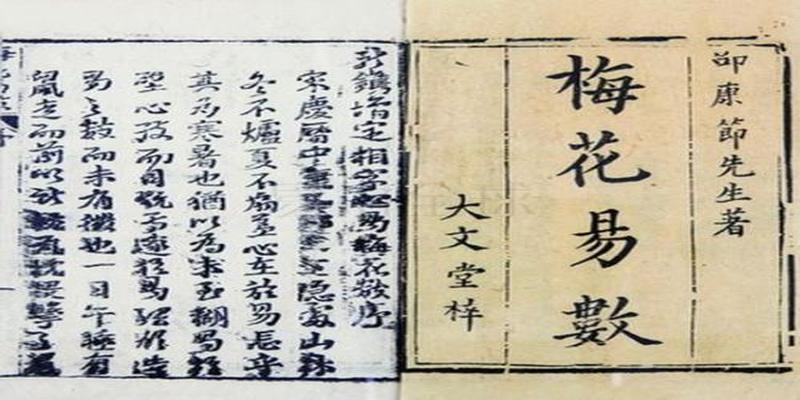 邵康節先生著
梅花易數
大文堂梓
新鐫增定相字心易梅花數序
宋慶曆中隱處山林
冬不爐夏不扇蓋心在於易忘乎
其為寒暑也猶以為未至糊易於
壁心致而目玩焉邃於易理欲造
易之數而未有徵也一日午睡有
鼠走而前以所枕